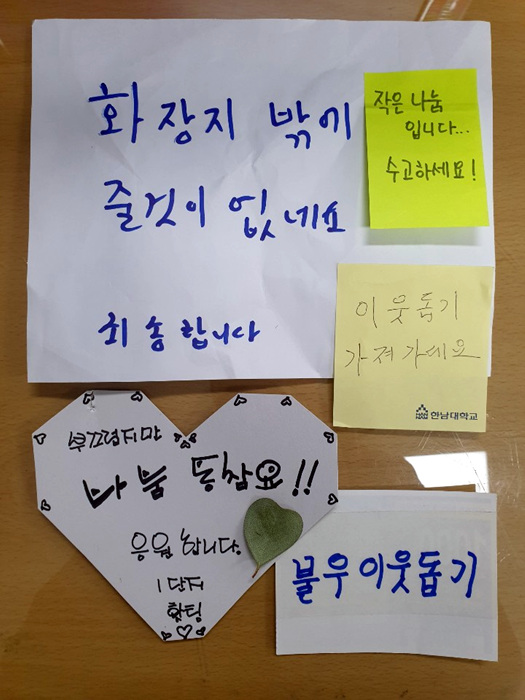 화장지 밖에
줄것이 없네요
죄송합니다
작은 나눔
입니다...
수고하세요!
이웃돕기
가져가세요
한남대학교
부끄럽지만
나눔 동참요!!
응원 합니다.
1단지
홧팅
불우이웃돕기